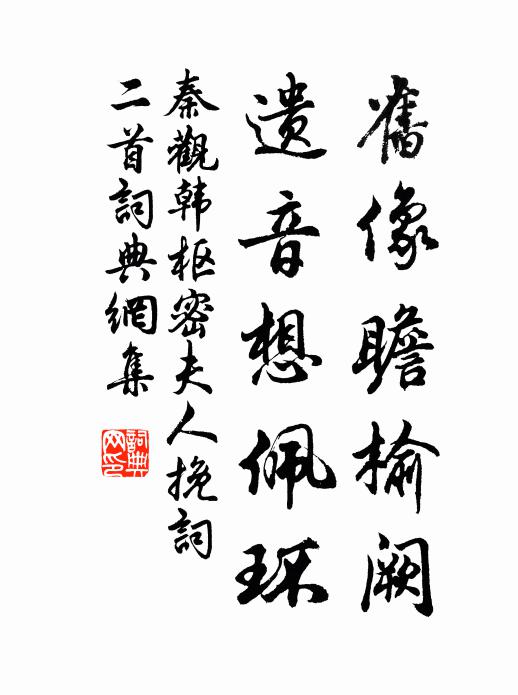 舊像瞻榆闕
遗音想佩环
秦觀韩枢密夫人挽詞
二首詞典網集
詞典网印